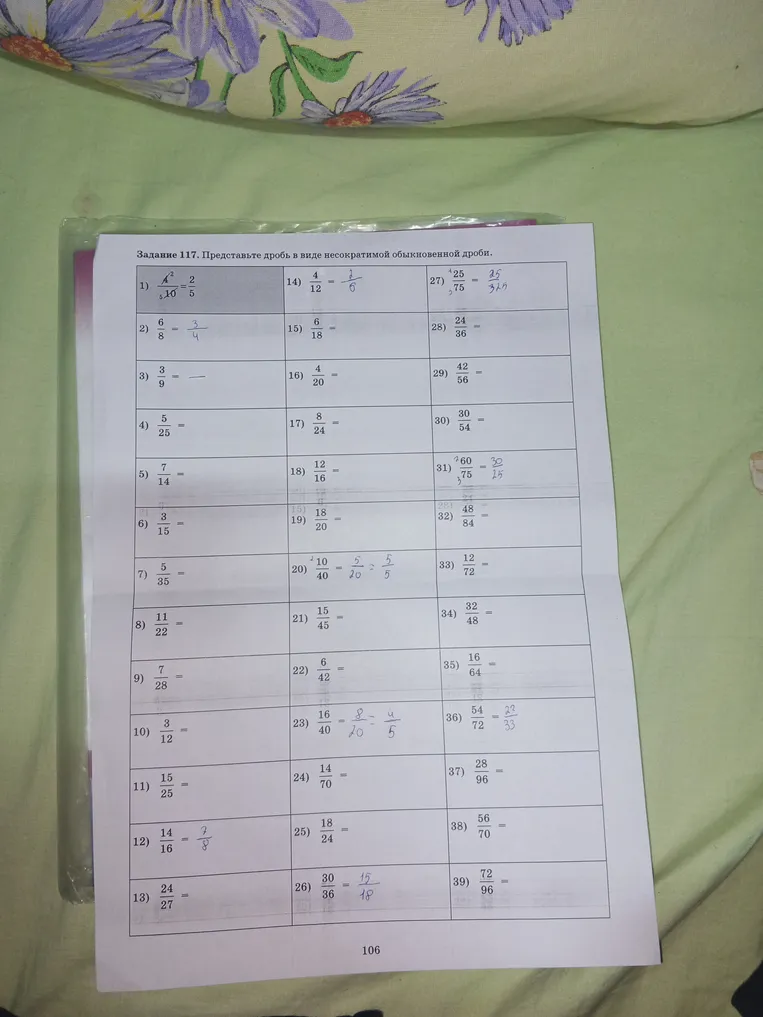 Задание 117. Представьте дробь в виде несократимой обыкновенной дроби.
1) 4 2 / 5 10 = 2/5
14) 4/12 =
27) 25/75 =
2) 6/8 = 3/4
15) 6/18 =
28) 24/36 =
3) 3/9 = —
16) 4/20 =
29) 42/56 =
4) 5/25 =
17) 8/24 =
30) 30/54 =
5) 7/14 =
18) 12/16 =
31) 60/75 = 30/25
6) 3/15 =
19) 18/20 =
32) 48/84 =
7) 5/35 =
20) 10/40 = 5/20 = 5/5
33) 12/72 =
8) 11/22 =
21) 15/45 =
34) 32/48 =
9) 7/28 =
22) 6/42 =
35) 16/64 =
10) 3/12 =
23) 16/40 = 8/20 = 4/5
36) 54/72 =
11) 15/25 =
24) 14/70 =
37) 28/96 =
12) 14/16 = 7/8
25) 18/24 =
38) 56/70 =
13) 24/27 =
26) 30/36 = 15/18
39) 72/96 =
106